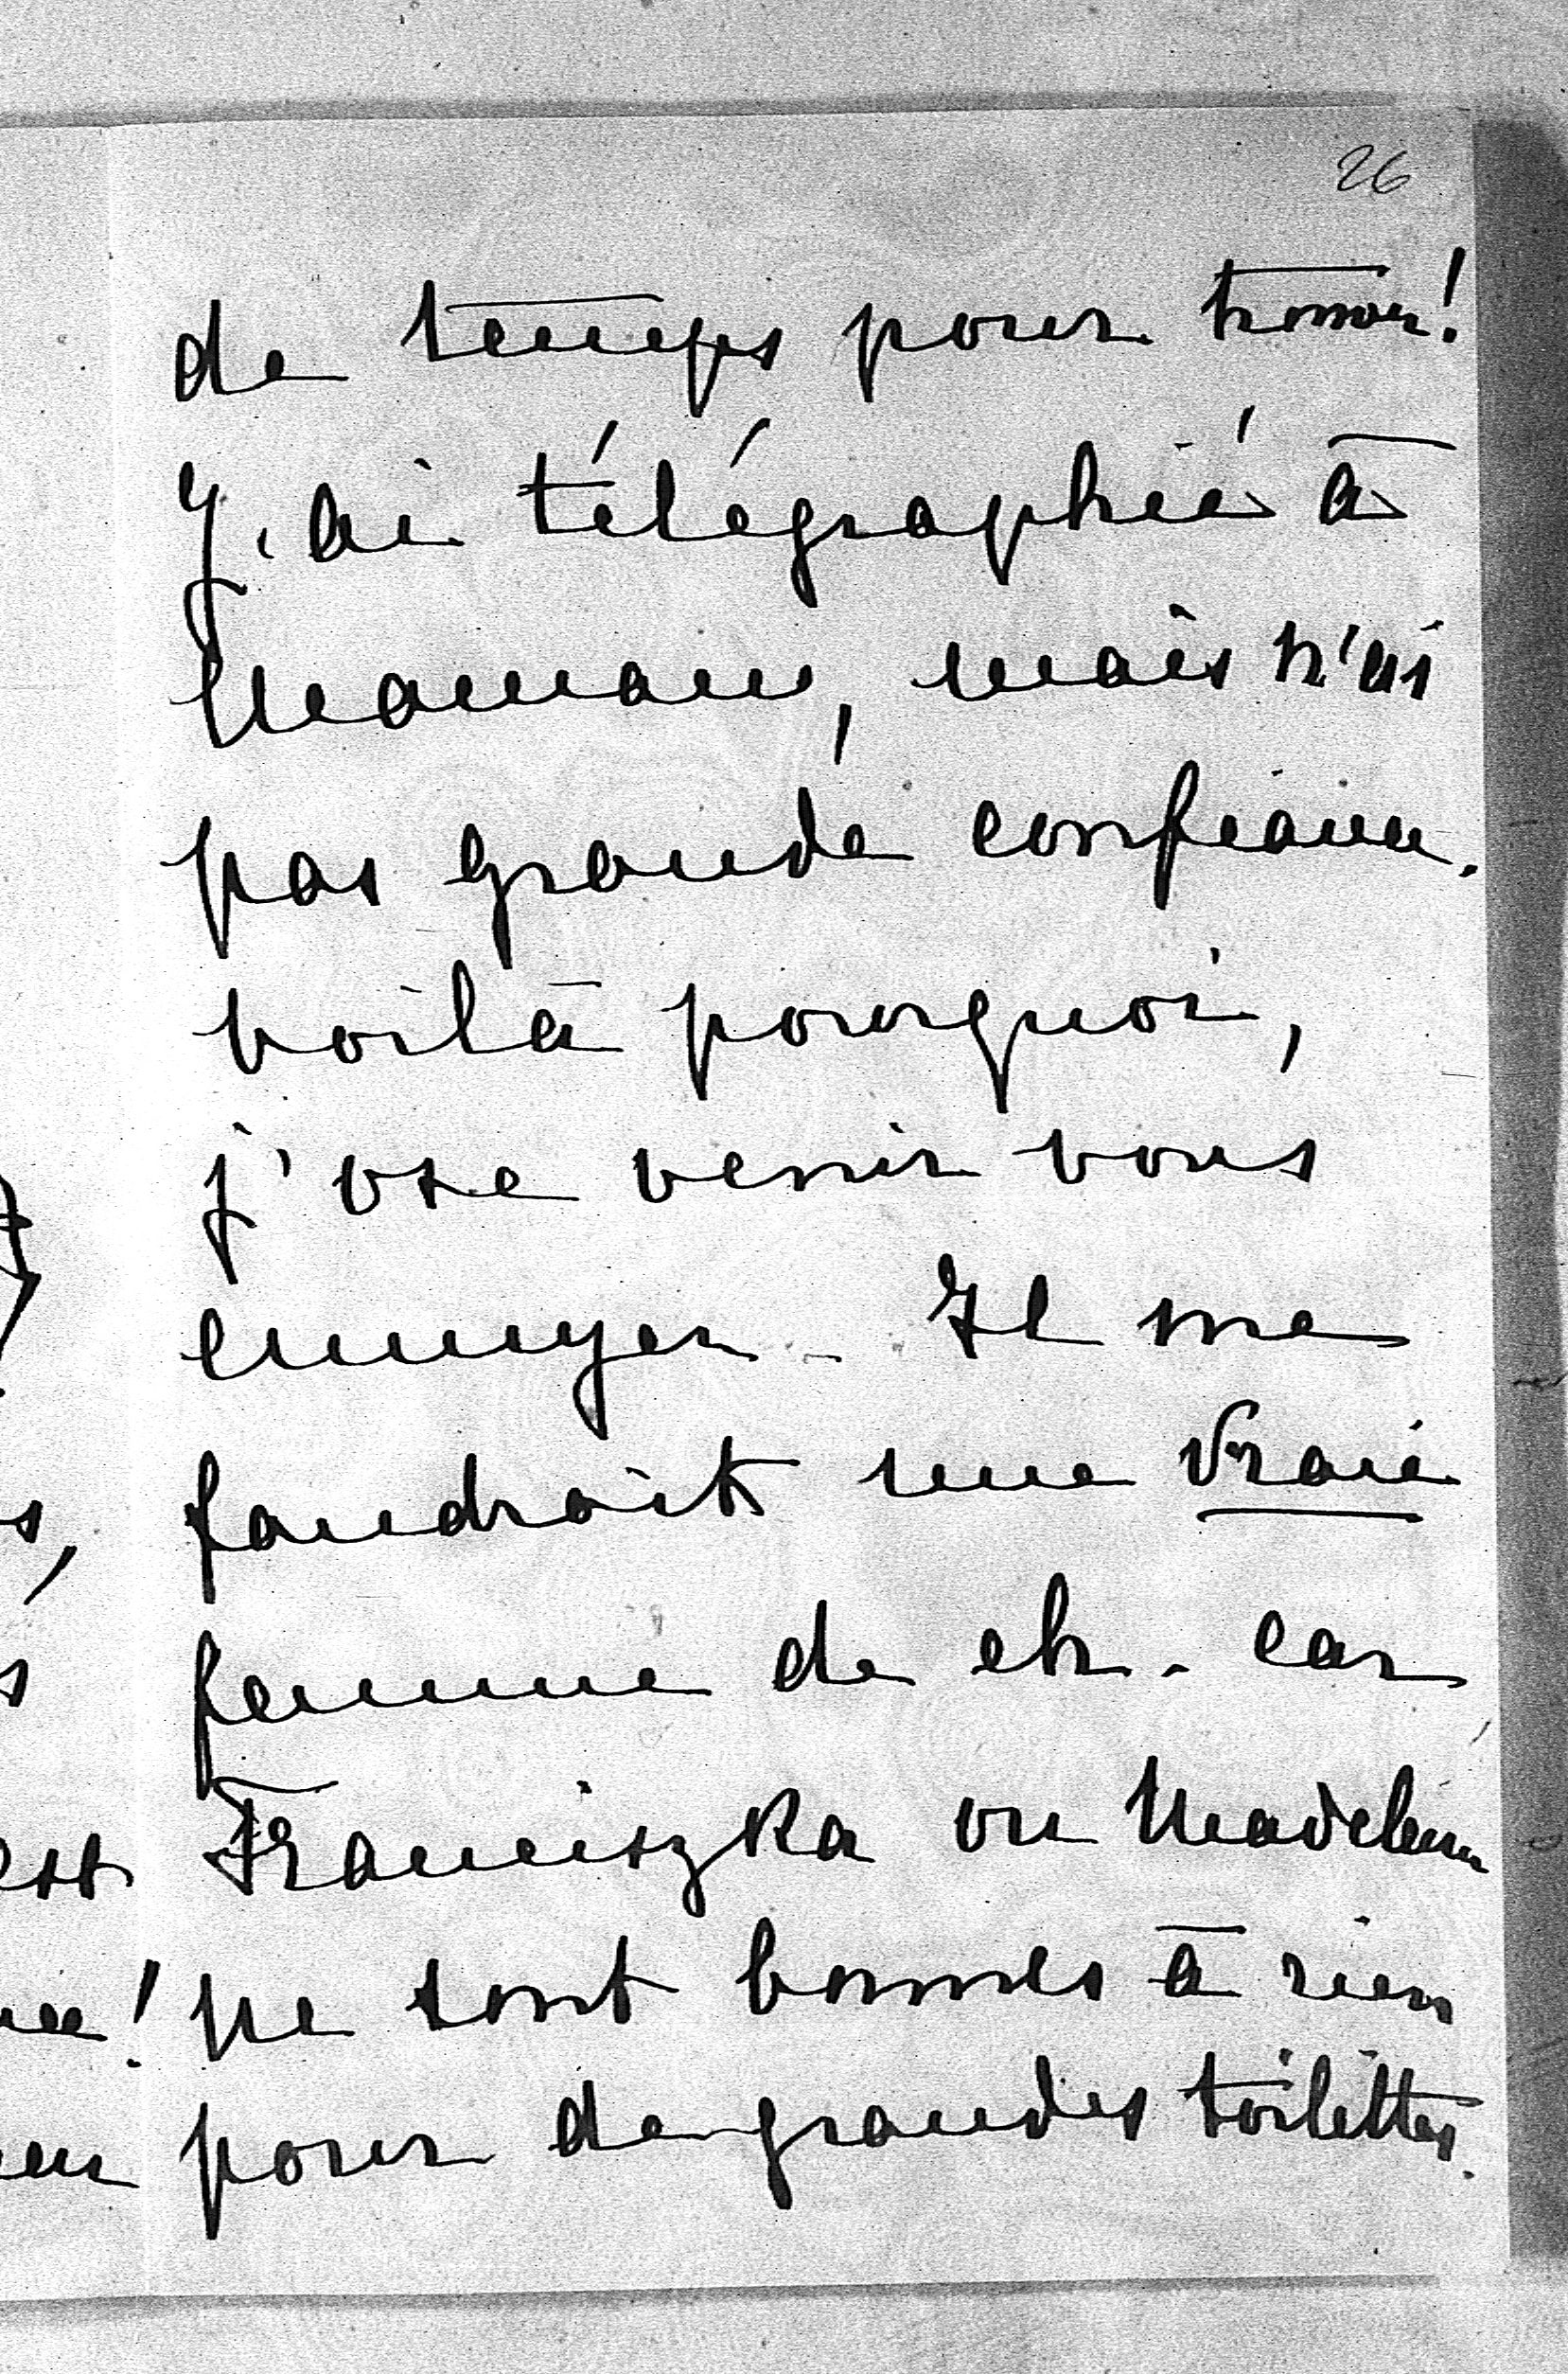 26
de temps pour trouver!
J'ai télégraphié à
Maman, mais n'ai
pas grande confiance.
voilà pourquoi,
j'ose venir vous
ennuyer - Il me
faudrait une vraie
femme de ch. car
Franciszka ou Madeleine
ne sont bonnes à rien
pour de grandes toilettes.